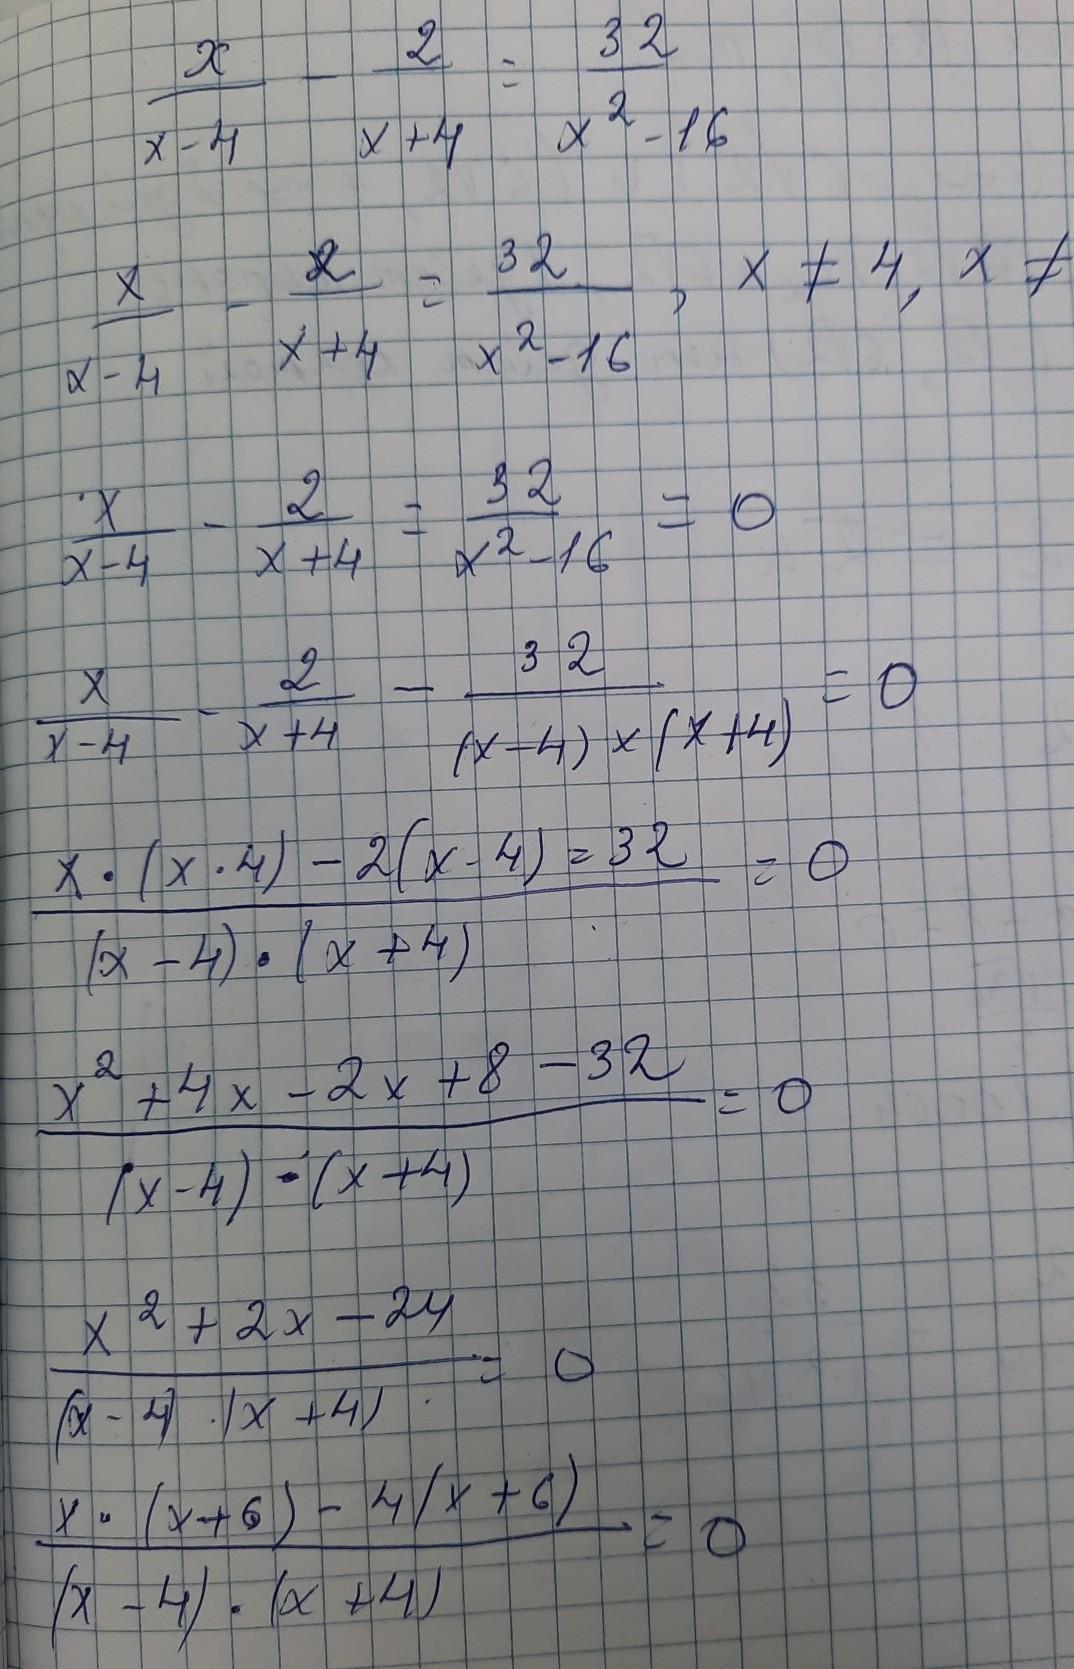 x/(x-4) - 2/(x+4) = 32/(x²-16)
x/(x-4) - 2/(x+4) = 32/(x²-16), x ≠ 4, x ≠
x/(x-4) - 2/(x+4) = 32/(x²-16) = 0
x/(x-4) - 2/(x+4) - 32/((x-4)×(x+4)) = 0
(x·(x·4) - 2(x-4) = 32)/((x-4)·(x+4)) = 0
(x²+4x-2x+8-32)/((x-4)·(x+4)) = 0
(x²+2x-24)/((x-4)·(x+4)) = 0
(x·(x+6) - 4(x+6))/((x-4)·(x+4)) = 0